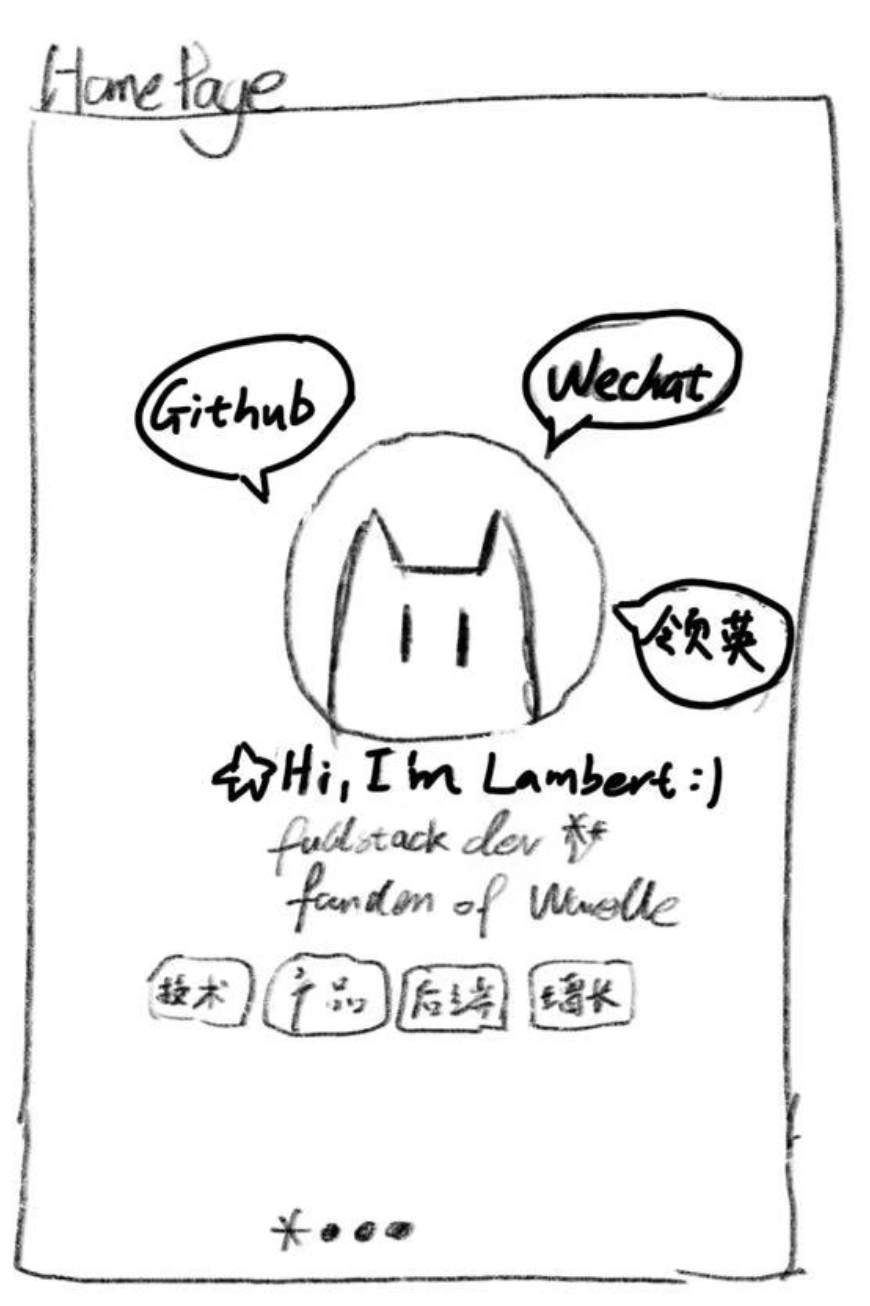 Home Page
Github
Wechat
领英
Hi, I'm Lambert :)
fullstack dev
of
技术
产品
后端
增长